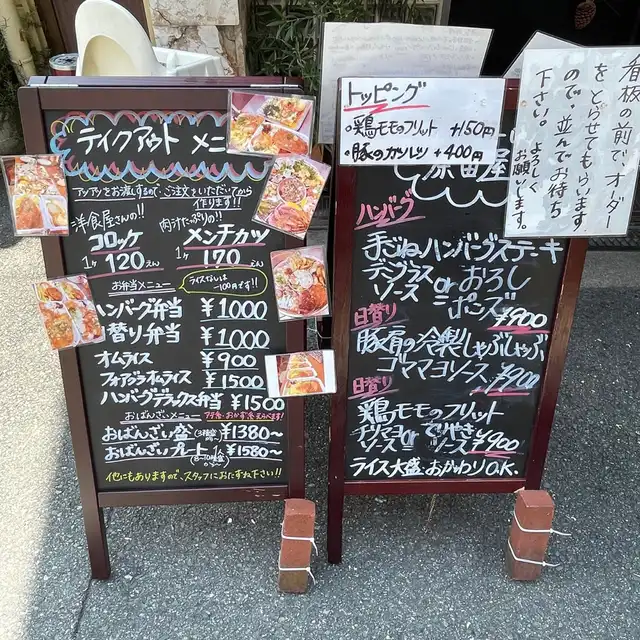 テイクアウト メニ
アツアツをお渡しするので、ご注文をいただいてから
作ります!!
洋食屋さんの!!
コロッケ
1ヶ 120えん
肉汁たっぷりの!!
メンチカツ
1ヶ 170えん
お弁当メニュー
ライスなしは
-100円です!!
ハンバーグ弁当 ¥1000
日替り弁当 ¥1000
オムライス ¥900
フォアグラオムライス ¥1500
ハンバーグデラックス弁当 ¥1500
おばんざいメニュー
おばんざい盛 ¥1380〜
おばんざいプレート ¥1580〜
他にもありますので、スタッフにおたずね下さい!!
トッピング
・鶏モモのフリット +150円
・豚ヒレのカツレツ +400円
ハンバーグ
手ごねハンバーグステーキ
デミグラス
ソース or おろし
ポンズ ¥900
日替り
豚肩の冷製しゃぶしゃぶ
ゴママヨソース ¥900
日替り
鶏モモのフリット
チリマヨ
ソース or てりやき
ソース ¥900
ライス大盛、おかわりO.K.
看板の前でオーダー
をとらせてもらいます
ので、並んでお待ち
下さい。よろしく
お願いします。